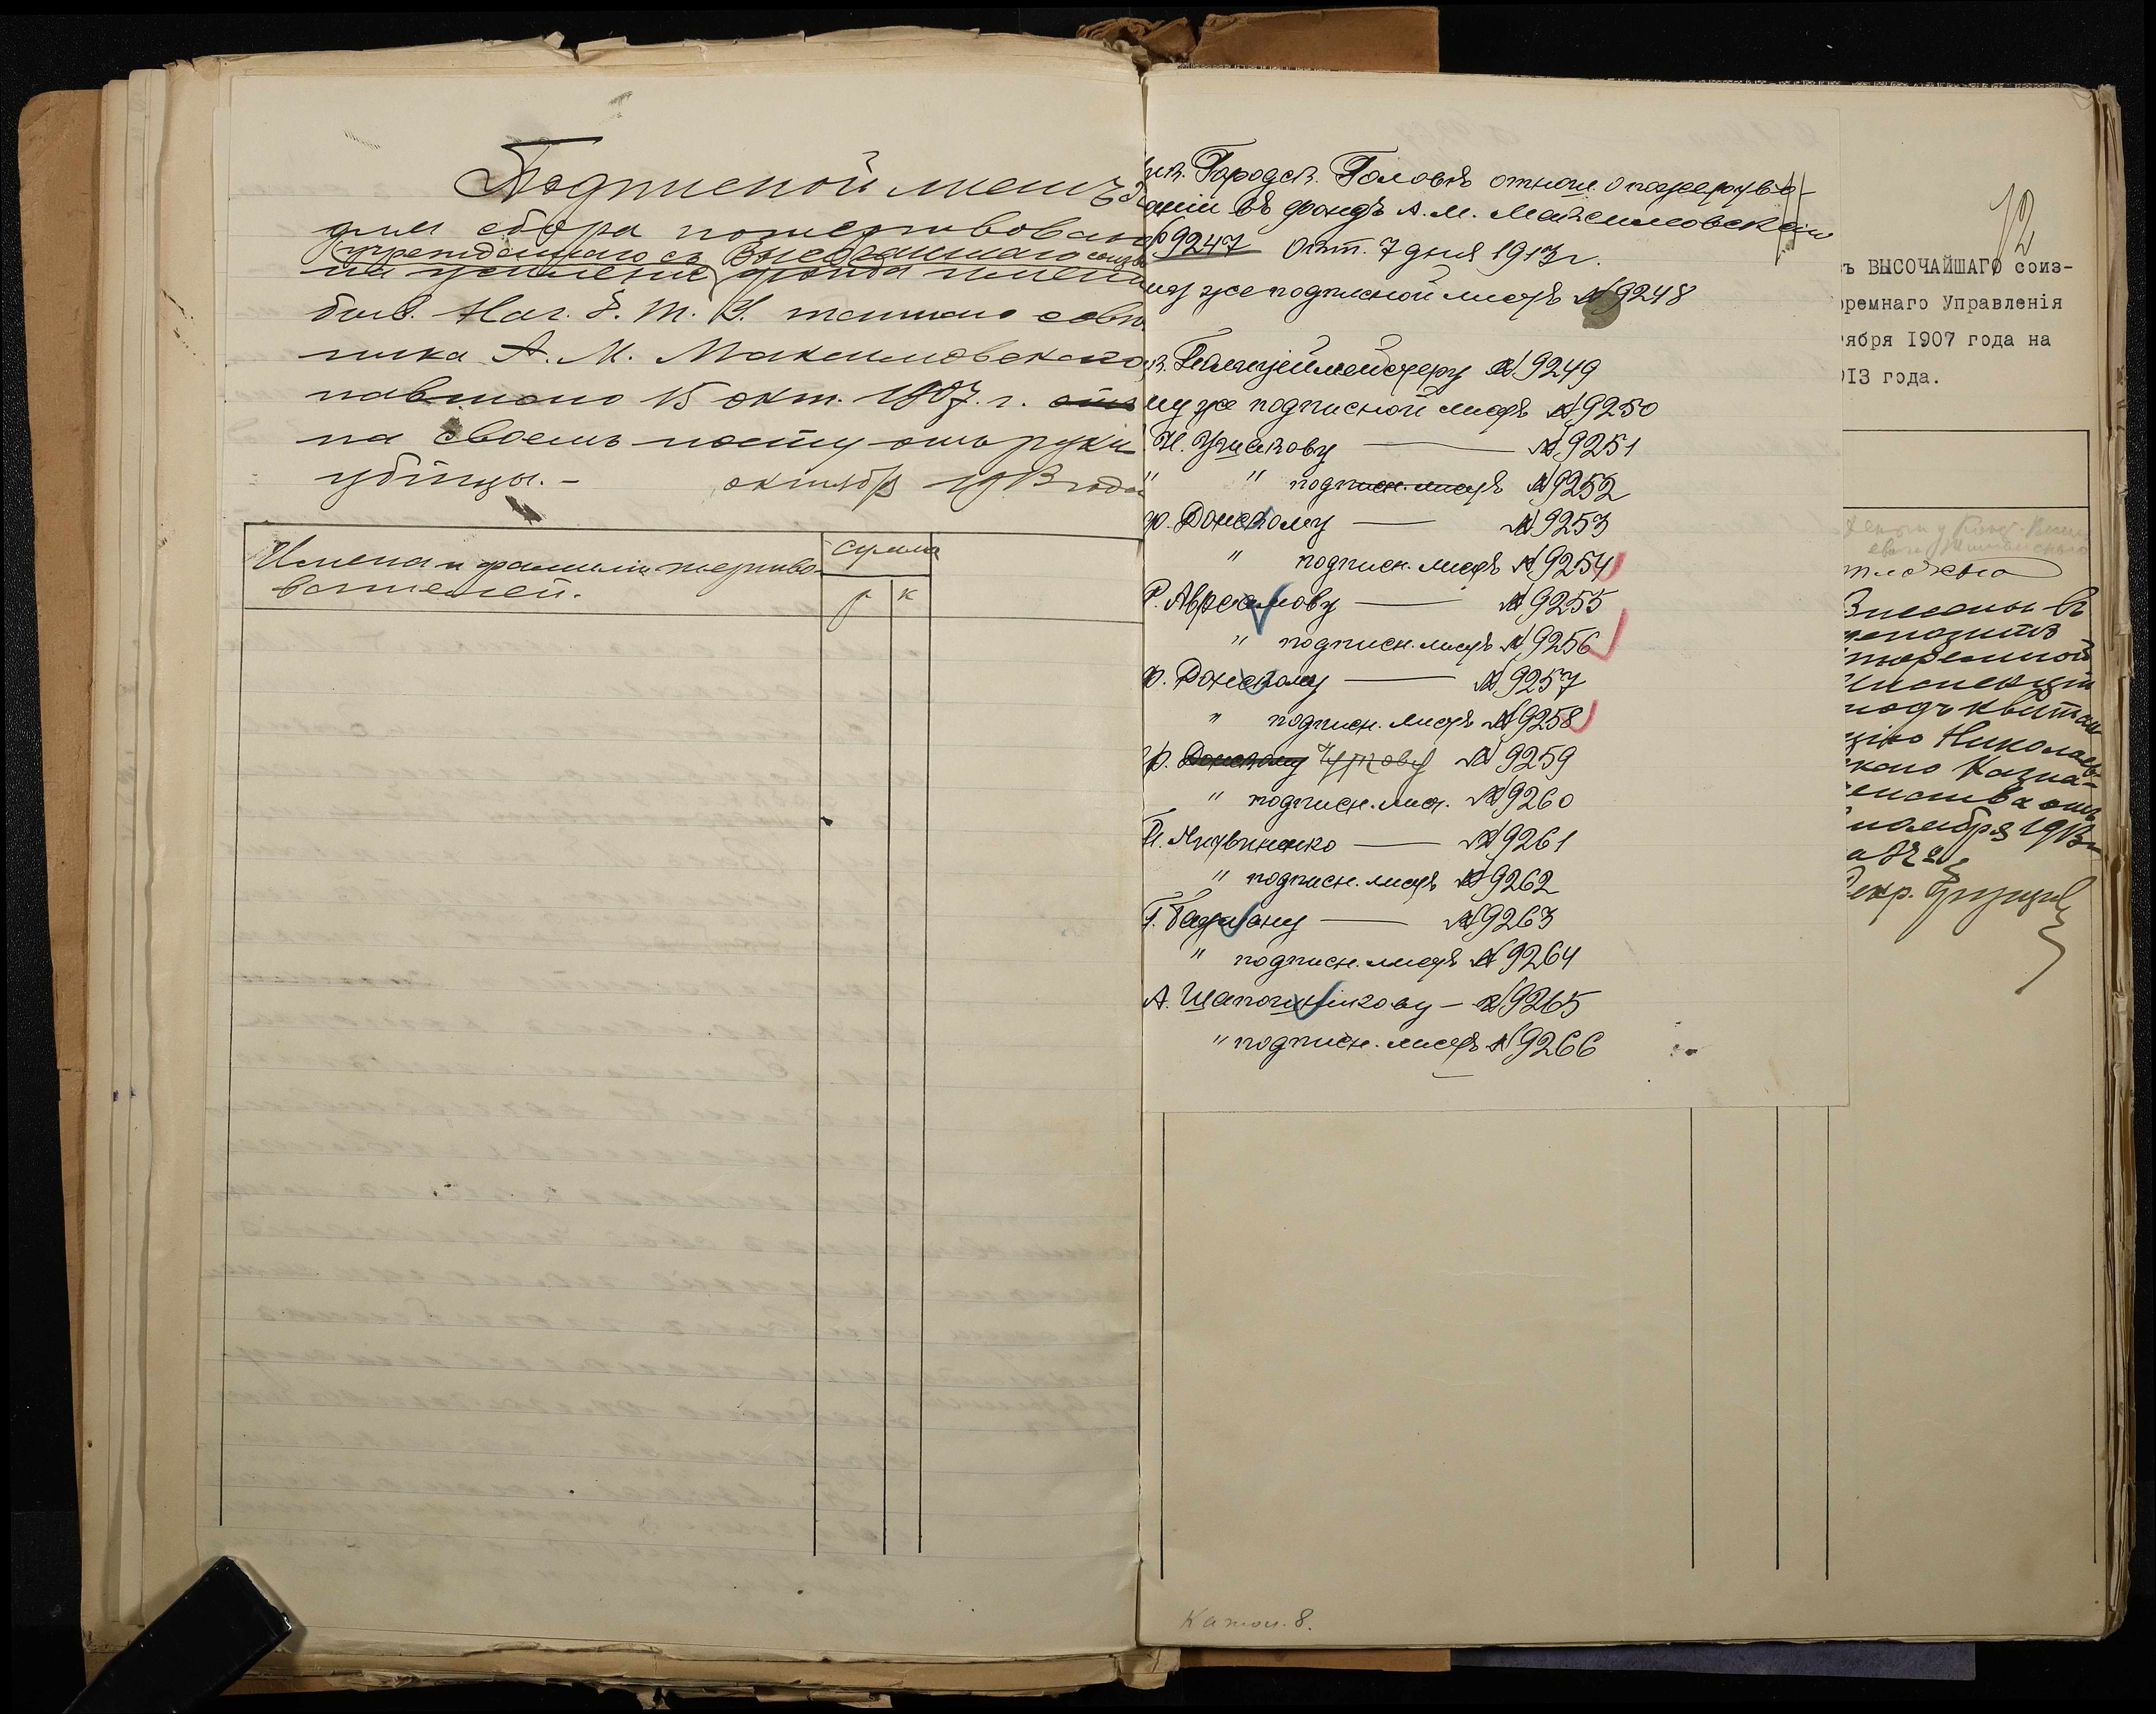 Подписной листъ
для сбора пожертвован
учрежденнаго съ Высочайшаго
на усиленіе фонда имени
быв. Нач. Г. Т. У. тайнаго совѣт
ника А. М. Максимовскаго,
павшаго 15 окт. 1907 г.
на своемъ посту отъ руки
убійцы. - октября 1913 года
Имена и фамиліи жертво-
вателей.
Сумма
р. к
Городск. Головѣ отнош. о пожертво-
аніи въ фондъ А. М. Максимовскаго
№ 9247 Окт. 7 дня 1913 г.
му же подписной листъ № 9248
Полицеймейстеру № 9249
му же подписной листъ № 9250
Н. Ушакову — № 9251
" " подписн. листъ № 9252
ф. Донскому — № 9253
" подписн. листъ № 9254
Р. Аврамову — № 9255
" подписн. листъ № 9256
ф. Донскому — № 9257
" подписн. листъ № 9258
р. Донскому № 9259
" подписн. лист. № 9260
И. Литвиненко — № 9261
" подписн. листъ № 9262
Г. Батшану — № 9263
" подписн. листъ № 9264
А. Шапошникову — № 9265
" подписн. листъ № 9266
11
12
ъ ВЫСОЧАЙШАГО соиз-
ремнаго Управленія
ября 1907 года на
913 года.
Внесены въ
депозитъ
тюремной
Инспекціи
подъ квитан
цію Николаев
скаго Казна-
ноября 1913 г
Секр.
Катол. 8.